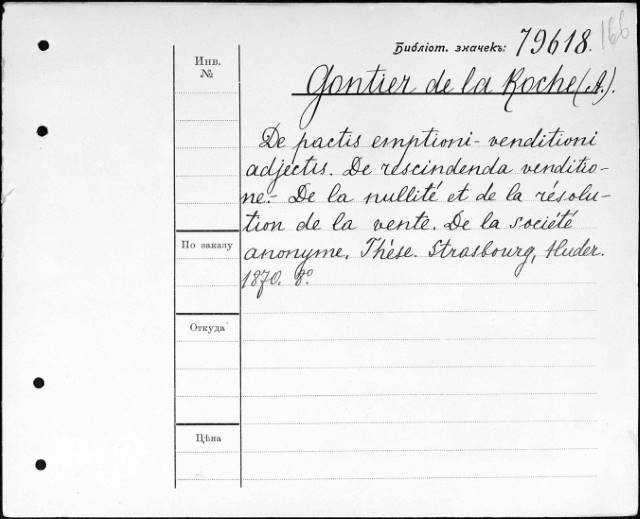 166
Библіот. значекъ: 79618.
Инв. №
Gontier de la Roche (A.).
De pactis emptioni-venditioni
adjectis. De rescindenda venditio-
ne.- De la nullité et de la résolu-
tion de la vente. De la société
anonyme. Thèse. Strasbourg, Huder.
1870. 8º
По заказу
Откуда
Цѣна